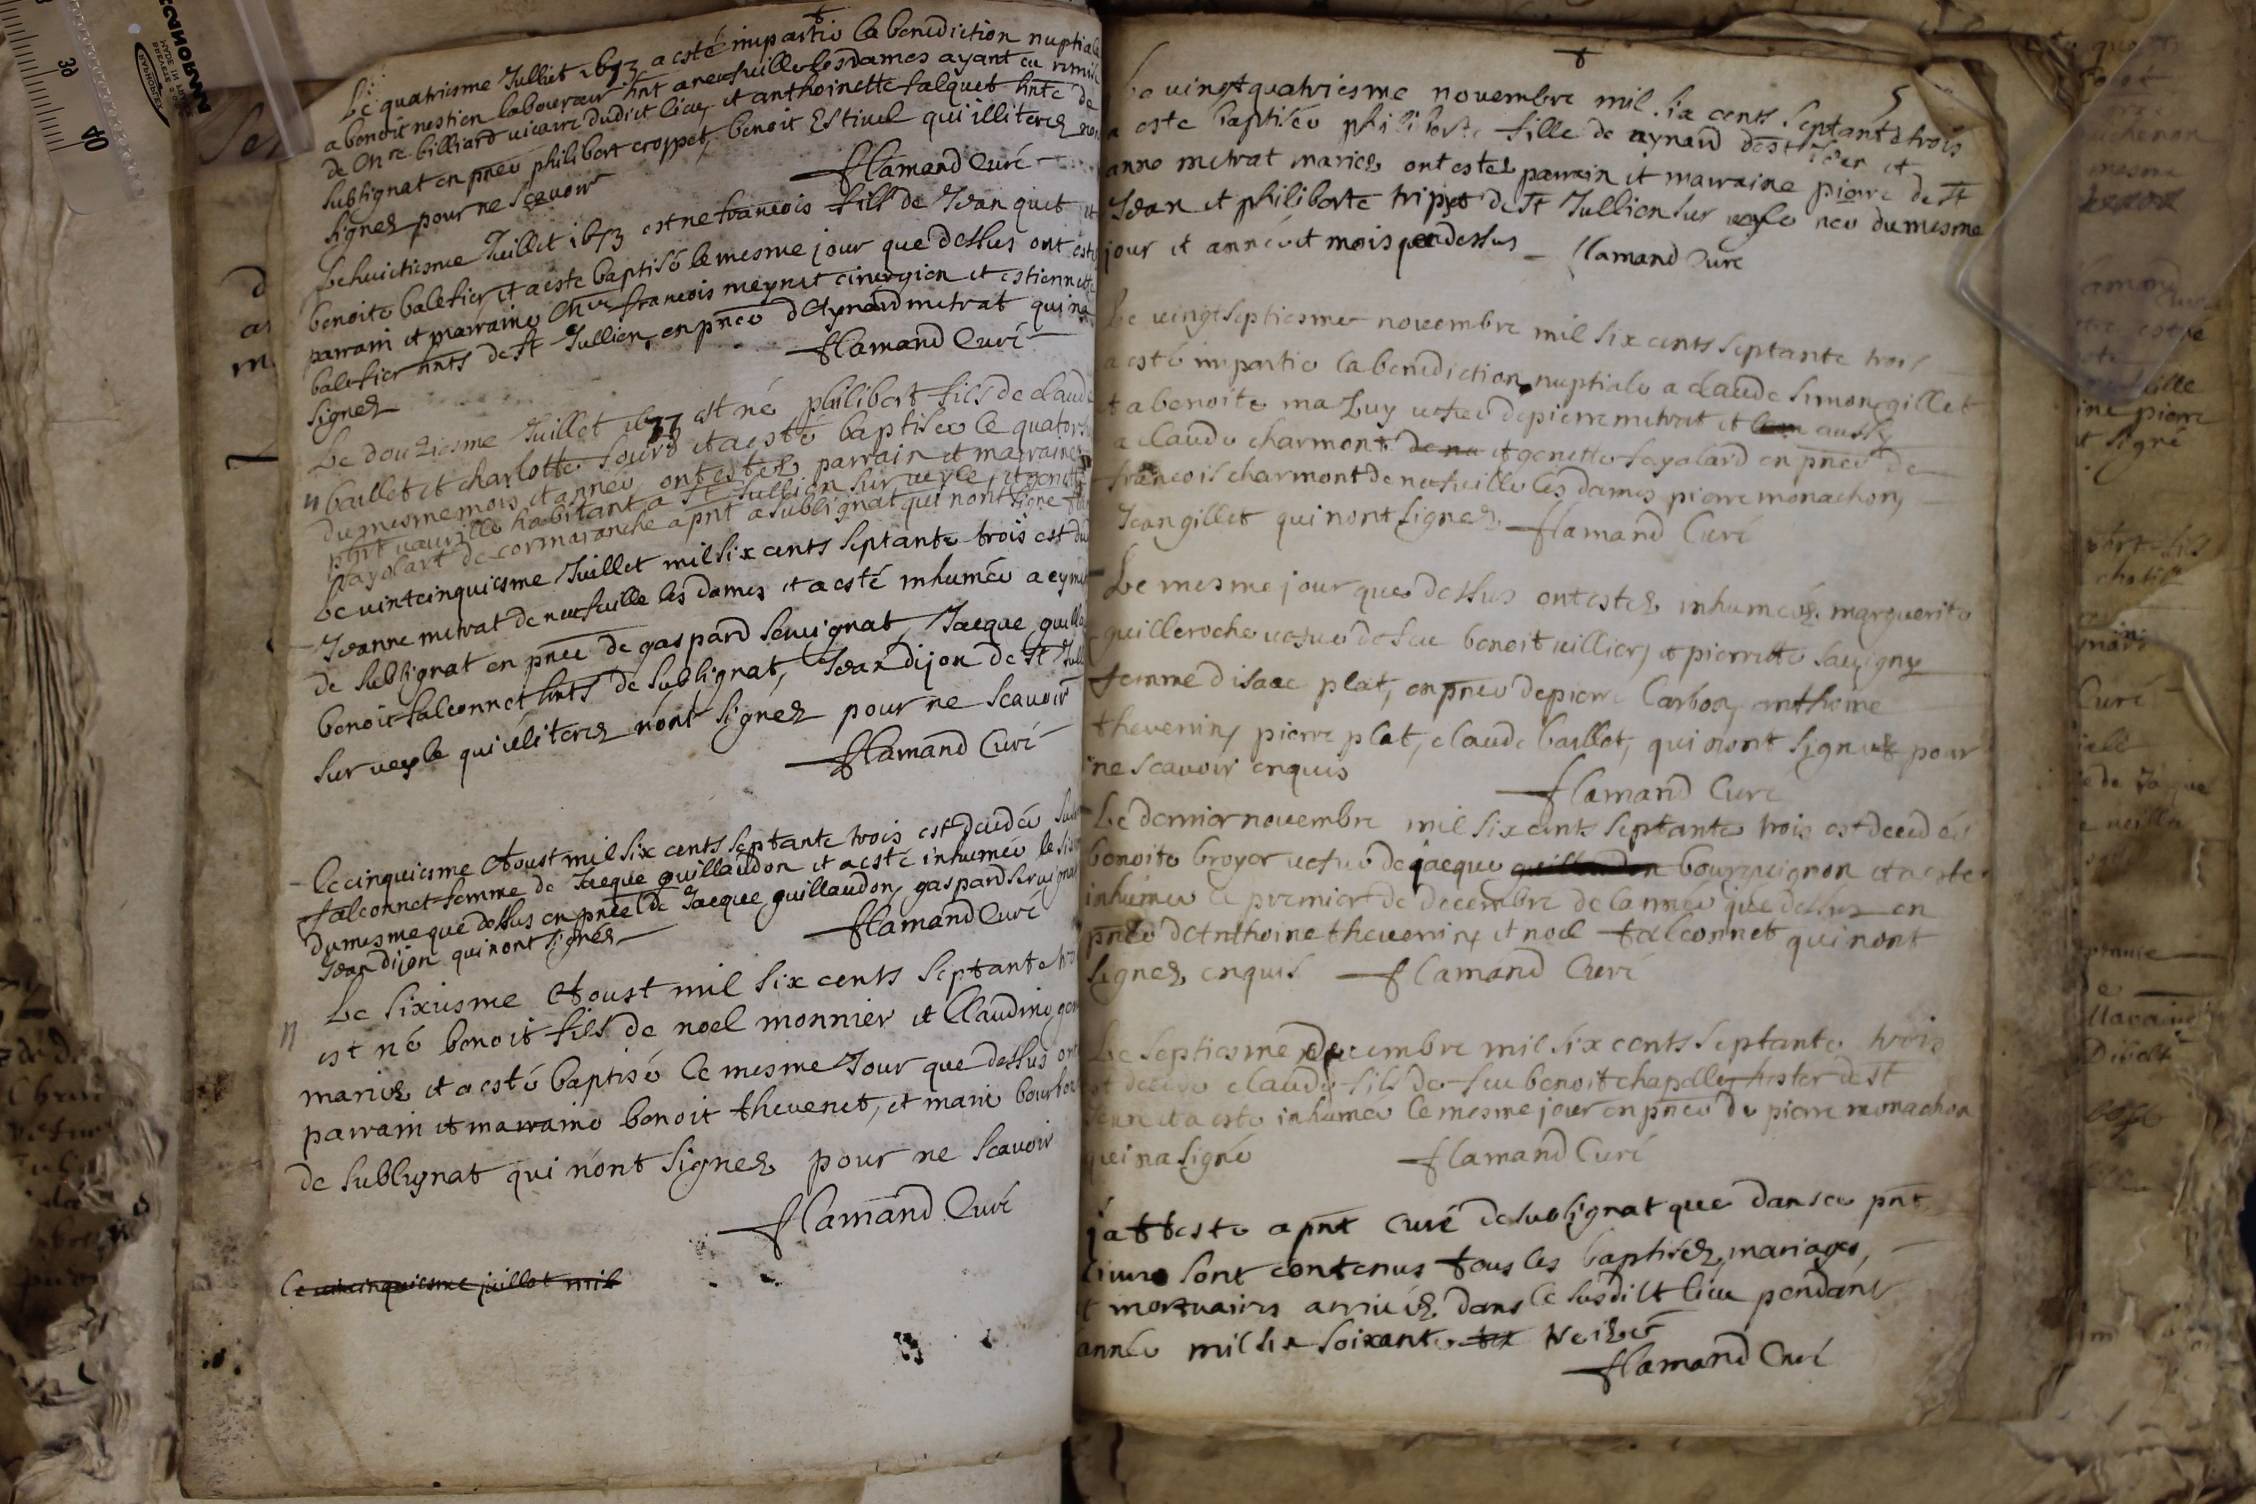 Le quatriesme Julliet 1673 a esté impartie la benediction nuptiale
a benoit nestien laboureur hnt a neufville les dames ayant eu remise
de Mre billiard vicaire dudict lieu, et anthoinette falquet hnte de
Sublignat en pnce philibert croppet, benoit Estivel qui illiterez non
signez pour ne scavoir
flamand Curé
Le huictiesme Juillet 1673 est ne francois fils de Jean quet et
benoite balefier et a este baptisé le mesme jour que dessus ont esté
parrain et marraine Mre francois meynet cirurgien et estiennette
balefier hnts de St Jullien, en pnce d'Aynard metrat qui na
signez
flamand Curé
Le douziesme Juillet 1677 est né philibert fils de claude
baillet et charlotte sourd et a esté baptisee le quators
du mesme mois et année ont estez parrain et marraine
habitant a St Jullien sur veyle, et genette
fayolart de cormaranche apnt a sublignat qui nont signe
Le vintcinquiesme Juillet mil six cents septante trois est
Jeanne metrat de neufville les dames et a esté inhumée
de Sublignat en pnce de gaspard servignat, Jacque guilla
benoit falconnet hnts de sublignat, Jean dijon de St Jull
sur veyle qui iliterez nont signez pour ne scavoir
flamand Curé
Le cinquiesme Aoust mil six cents septante trois est decedée
falconnet femme de Jacque guillaudon et a esté inhumée le
du mesme que dessus en pnce de Jacque guillaudon, gaspard servignat
Jean dijon qui nont signez
flamand Curé
Le sixiesme Aoust mil six cents septante
est né benoit fils de noel monnier et Claudine
mariez et a esté baptisé le mesme Jour que dessus ont
parrain et marraine benoit thevenet, et marie
de sublignat qui nont signez pour ne scavoir
flamand Curé
Le vincinquiesme juillet mil
5
Le vingtquatriesme novembre mil six cents septante trois
a este baptisée philiberte fille de aynard et
anne metrat mariez ont estez parrain et marraine pierre de St
Jean et philiberte tripet de St Jullien sur veyle nee du mesme
jour et année et mois que dessus flamand Curé
Le vingtseptiesme novembre mil six cents septante trois
a esté impartie la benediction nuptiale a claude simon gillet
et a benoite mazuy vefve de pierre metrat et aussy
a claude charmont et genette fayolard en pnce de
francois charmont de neufville les dames pierre monachon
Jean gillet qui nont signez. flamand Curé
Le mesme jour que dessus ont estez inhumées marguerite
guilleroche vefve de feu benoit villier, et pierrette savigny
femme d'isaac plat, en pnce de pierre Carbon, anthoine
thevenin, pierre plat, claude baillet, qui nont signez pour
ne scavoir enquis
flamand Curé
Le dernier novembre mil six cents septante trois est decedée
benoite broyer vefve de jacque guillaudon bourguignon et a este
inhumee le premier de decembre de la nnée que dessus en
pnce d'Anthoine thevenin, et noel falconnet qui nont
signez enquis flamand Curé
Le septiesme decembre mil six cents septante trois
est decede claude fils de feu benoit chapelle de St
et a este inhumée le mesme jour en pnce de pierre monachon
qui na signé flamand Curé
j'atteste apnt curé de sublignat que dans ce pnt
livre sont contenus tous les baptisez, mariages,
et mortuaires arrivéz dans le susdilt lieu pendant
année mil six soixante treize
flamand Curé